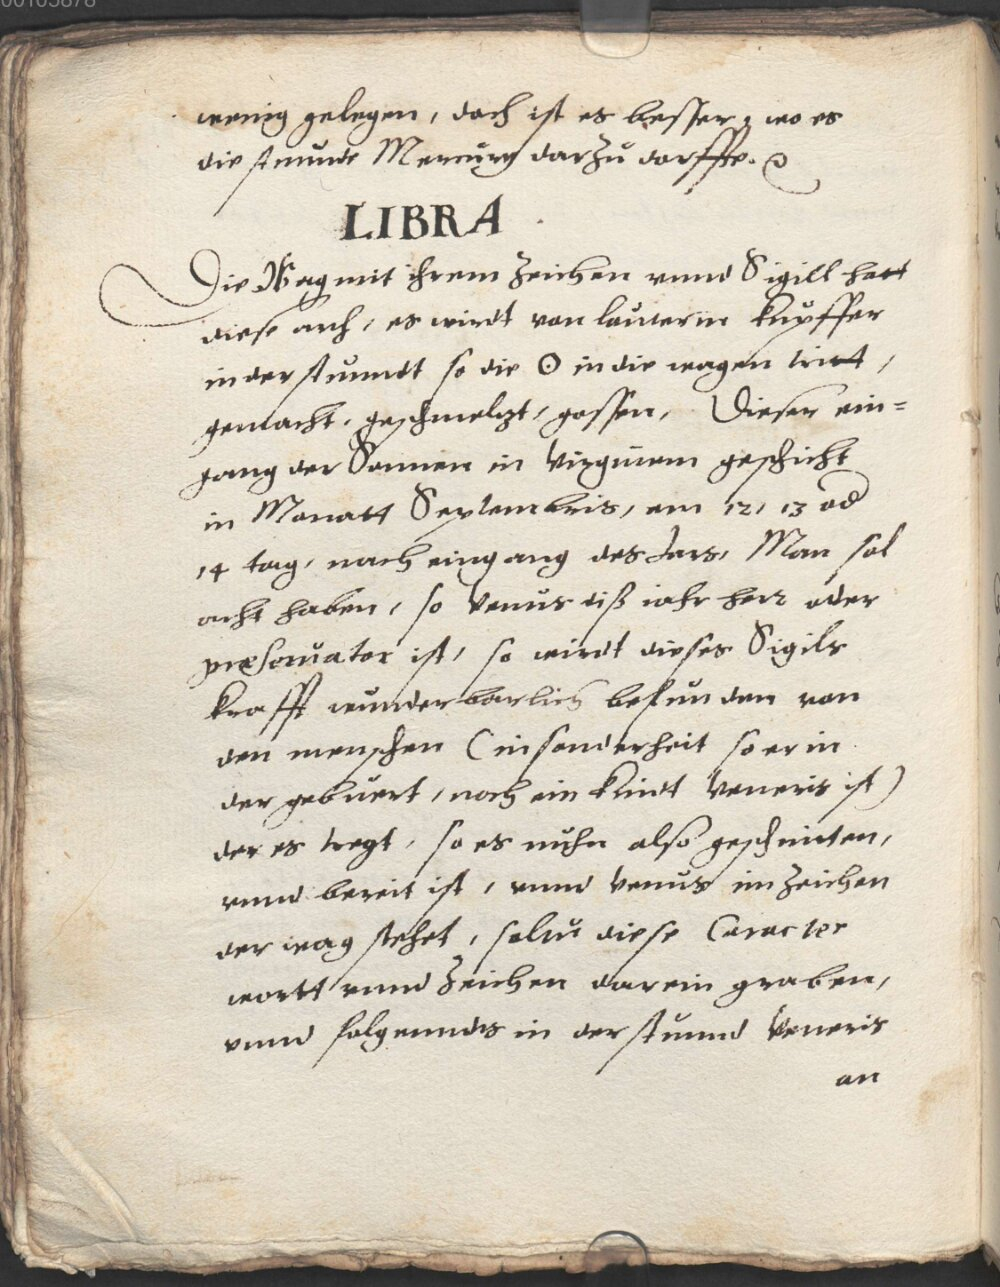 00105878
wenig gelegen, doch ist es besser, wo es
die stuunde Mercury darzu dorffte.
LIBRA
Die Wag mit ihrem Zeichen vnnd Sigill hatt
diese arth, es wirdt von lauterm kupffer
in der stuundt so die ☉ in die wagen tritt,
gemacht, geschmeltzt, gossen, Dieser ein=
gang der Sonnen in Virginem geschicht
in Monatt Septembris, am 12, 13 od
14 tag, nach eingang des Jars, Man sol
acht haben, so Venus diß iahr herr oder
præseruator ist, so wirdt dieses Sigils
krafft wunderbarlich befunden von
den menschen (in sonderheit so er in
der gebuert, noch ein kindt Veneris ist)
der es tregt, so es nuhn also geschnitten,
vnnd bereit ist, vnnd Venus im Zeichen
der wag stehet, soltu diese Caracter
wortt vnnd Zeichen darein graben,
vnnd folgennds in der stuund Veneris
an